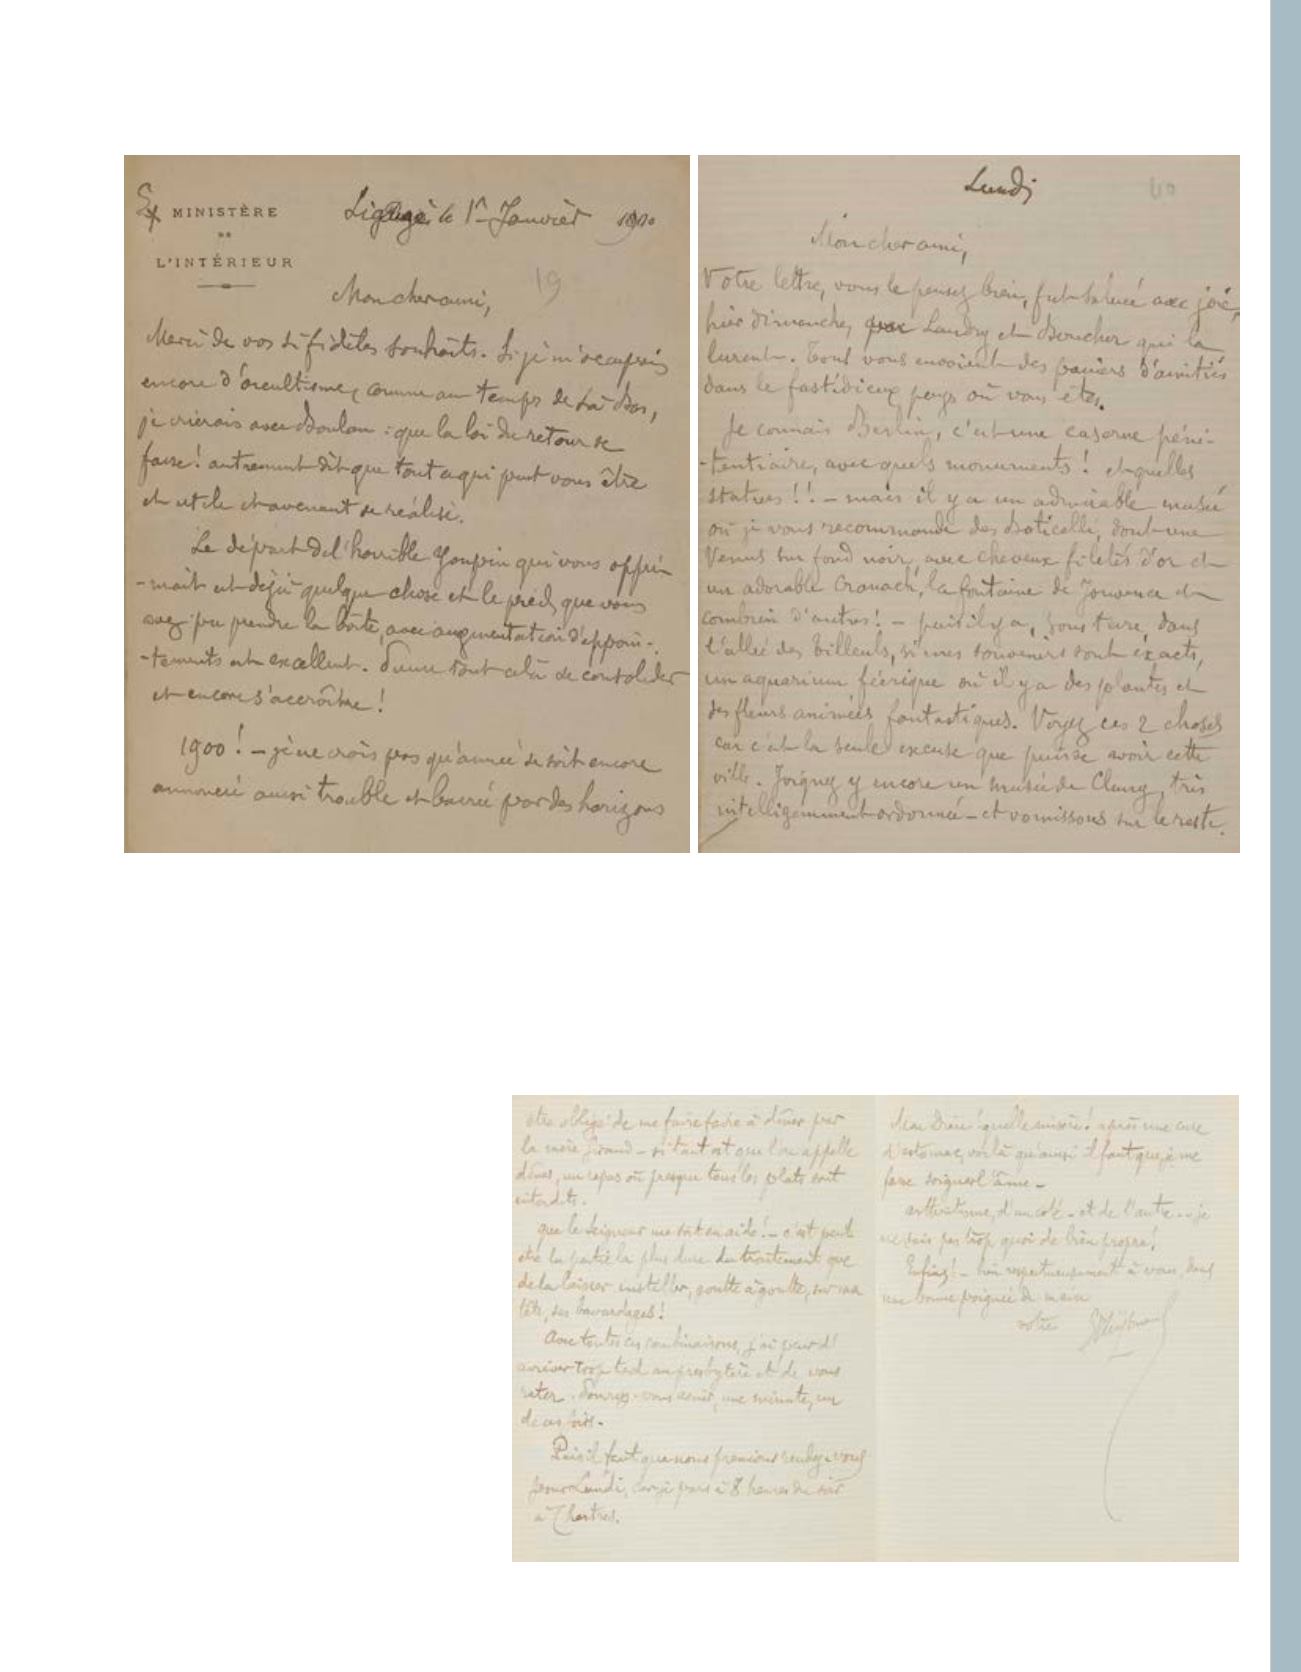 Ex MINISTÈRE
DE
L'INTÉRIEUR
Ligugé le 1er Janvier 1900
19
Mon cher ami,
Merci de vos si fidèles souhaits. Si je m'occupais
encore d'occultisme, comme au temps de Là-Bas,
je crierais avec Boulan : que la loi du retour se
fasse! autrement dit que tout ce qui peut vous être
et utile et avenant se réalise.
Le départ de l'horrible Youpin qui vous oppri-
-mait est déjà quelque chose et le pied que vous
avez pu prendre la boîte, avec augmentation d'appoin-
-tements est excellent. tout cela se consolider
et encore s'accroître!
1900! – je ne crois pas qu'année se soit encore
annoncée aussi trouble et barrée par des horizons
Lundi
Mon cher ami,
Votre lettre, vous le pensez bien, fut saluée avec joie,
hier dimanche, par Landry et Boucher qui la
lurent. Tous vous envoient des paniers d'amitiés
dans le fastidieux pays où vous êtes.
Je connais Berlin, c'est une caserne péni-
-tentiaire, avec quels monuments! et quelles
statues!! – mais il y a un admirable musée
où je vous recommande des Boticelli, dont une
Venus sur fond noir, avec cheveux filetés d'or et
un adorable Cranach, la fontaine de Jouvence et
combien d'autres! – puis il y a, sous terre, dans
l'allée des Tilleuls, si mes souvenirs sont exacts,
un aquarium féerique où il y a des plantes et
des fleurs animées fantastiques. Voyez ces 2 choses
car c'est la seule excuse que puisse avoir cette
ville. Joignez y encore un musée de Cluny, très
intelligemment ordonné – et vomissons sur le reste.
être obligé de me faire faire à dîner par
la mère Giraud – si tant est que l'on appelle
dîner, un repas où presque tous les plats sont
interdits.
que le Seigneur me soit en aide! – c'est peut
être la partie la plus dure du traitement que
de la laisser instiller, goutte à goutte, sur ma
tête, ses bavardages!
Avec toutes ces combinaisons, j'ai peur d'
arriver trop tard au presbytère et de vous
rater. Pourrez-vous venir, une minute, un
de ces soirs.
Puis il faut que nous prenions rendez-vous
pour Lundi, car je pars à 8 heures du soir
à Chartres.
Mon Dieu! quelle misère! après une cure
d'estomac, voilà qu'aussi il faut que je me
fasse soigner l'âme –
arthritisme, d'un côté – et de l'autre – je
ne sais pas trop quoi de bien propre!
Enfin! – bien respectueusement à vous, dans
une bonne poignée de main
votre
GHuysmans